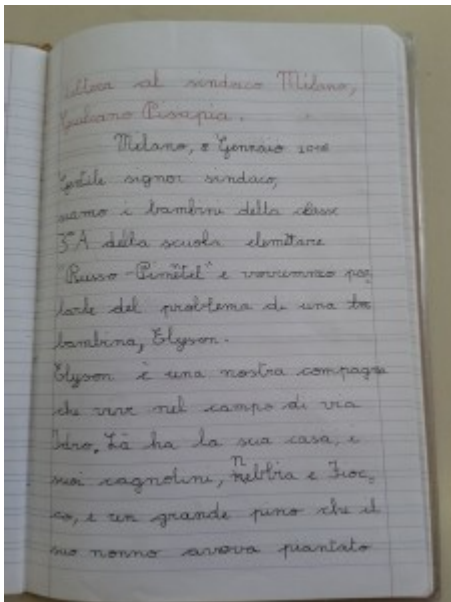 Lettera al sindaco Milano,
Giuliano Pisapia.
Milano, 8 Gennaio 2016
Gentile signor sindaco,
siamo i bambini della classe
3ªA della scuola elemitare
"Russo-Pimẽtel" e vorremmo par
larle del problema di una
bambina, Elyson.
Elyson è una nostra compagna
che vive nel campo di via
Idro. Là ha la sua casa, i
suoi cagnolini, nebbia e Fioc
co, e un grande pino che il
suo nonno aveva piantato